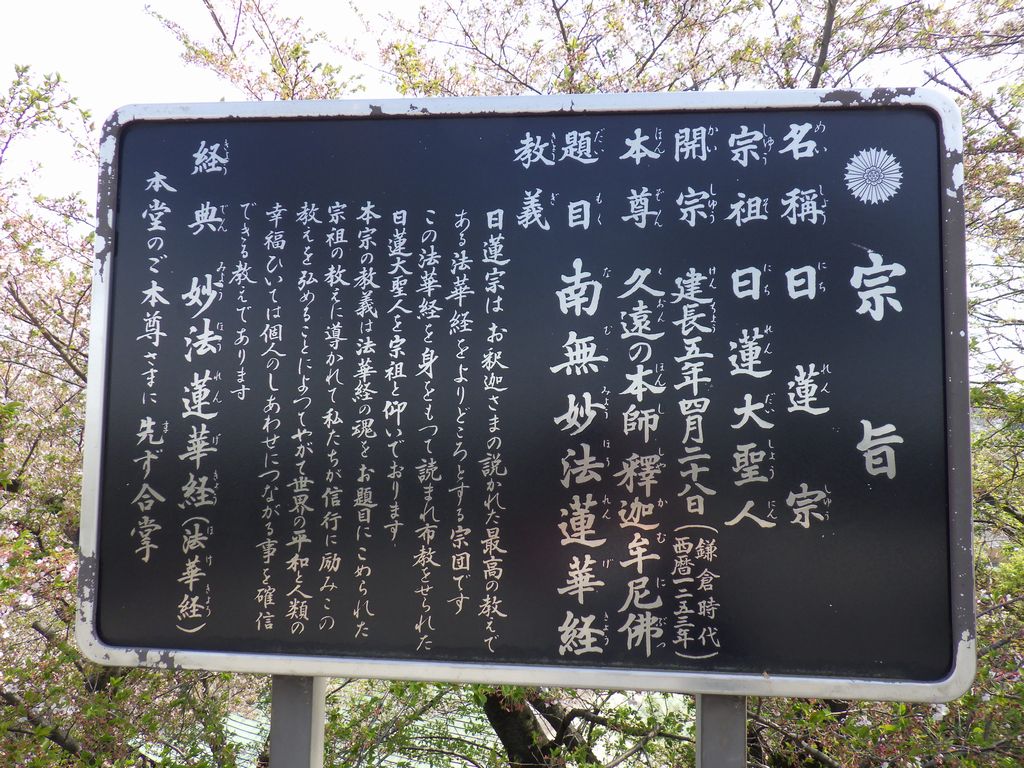 宗旨
名称 日蓮宗
宗祖 日蓮大聖人
開宗 建長五年四月二十八日(鎌倉時代 西暦一二五三年)
本尊 久遠の本師釋迦牟尼佛
題目 南無妙法蓮華経
教義
日蓮宗はお釈迦さまの説かれた最高の教えで
ある法華経をよりどころとする宗団です
この法華経を身をもって読まれ布教をせられた
日蓮大聖人を宗祖と仰いでおります
本宗の教義は法華経の魂をお題目にこめられた
宗祖の教えに導かれて私たちが信行に励みこの
教えを弘めることによってやがて世界の平和と人類の
幸福ひいては個人のしあわせにつながる事を確信
できる教えであります
経典 妙法蓮華経(法華経)
本堂のご本尊さまに先ず合掌